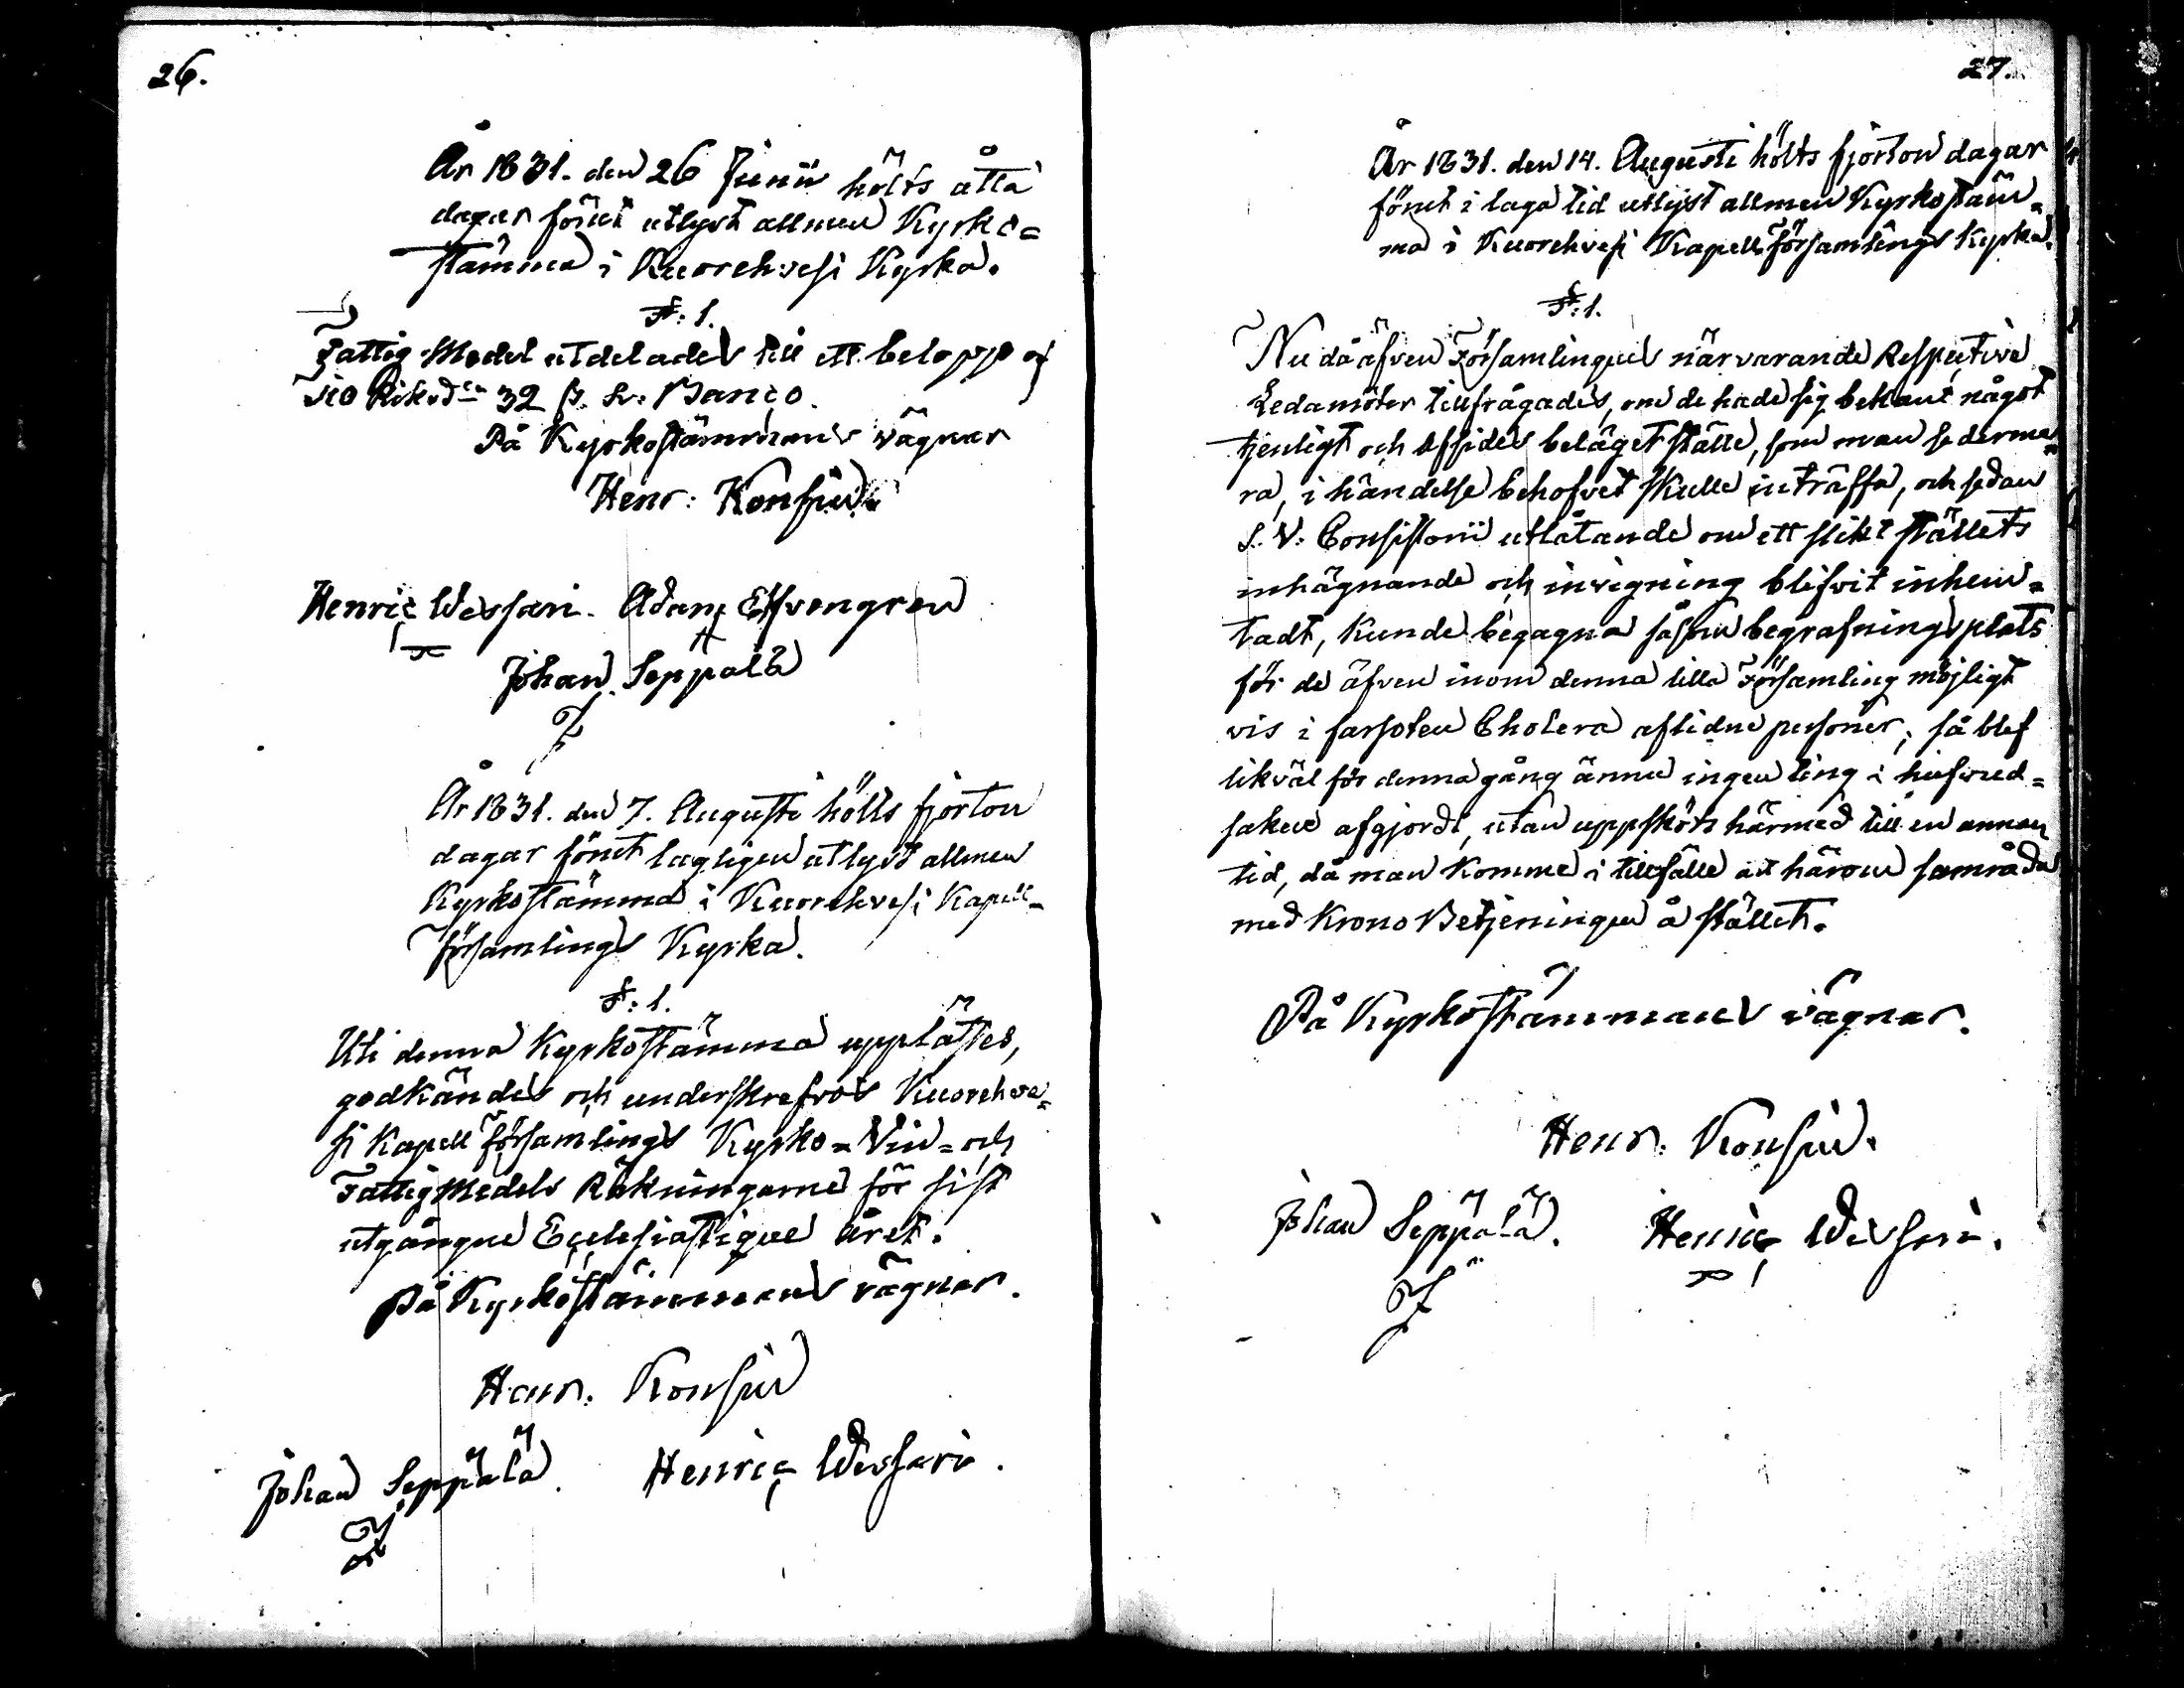 26.
År 1831. den 26 Junii hölts åtta
dagar förut utlyst allmen Kyrko=
stämma i Kuorehvesi Kyrka.
§: 1.
Fattig-Medel utdelades till ett belopp af
tio Riksd:r 32 ß. Sv: Banco.
På Kyrkostämmans vägnar
Henr: Konsin
Henric Wessari. Adam Elfvengren
Johan Seppälä
År 1831. den 7. Augusti hölts fjorton
dagar förut lagligen utlyst allmen
Kyrkostämma i Kuorehvesi Kapell-
församlings Kyrka.
§: 1.
Uti denna Kyrkostämma upplästes,
godkändes och underskrefvos Kuorehve=
si Kapell församlings Kyrko= Vin= och
Fattig Medels Räkningarne för sist
utgångne Ecclesiastique året.
På Kyrkostämmans vägnar.
Henr. Konsin
Johan Seppälä. Henric Wessari.
27.
År 1831. den 14. Augusti hölts fjorton dagar
förut i laga tid utlyst allmen Kyrkostäm=
ma i Kuorehvesi Kapell församlings Kyrka.
§: 1.
Nu då äfven Församlingens närvarande Respective
Ledamöter tillfrågades, om de hade sig bekant något
tjenligt och afsides beläget ställe, som man sederme=
ra, i händelse behofvet skulle inträffa, och sedan
S. V. Consistorii utlåtande om ett slikt ställets
inhägnande och invigning blifvit inhem=
tadt, kunde begagna såsom begrafningsplats
för de äfven inom denna lilla Församling möjligt
vis i farsoten Cholera aflidne personer, så blef
likväl för denna gång ännu ingen ting i hufvud=
saken afgjordt, utan uppsköts härmed till en annan
tid, då man komme i tillfälle at härom samråda
med Krono Betjeningen å stället.
På Kyrkostämmans vägnar.
Henr. Konsin.
Johan Seppälä. Henric Wessari.